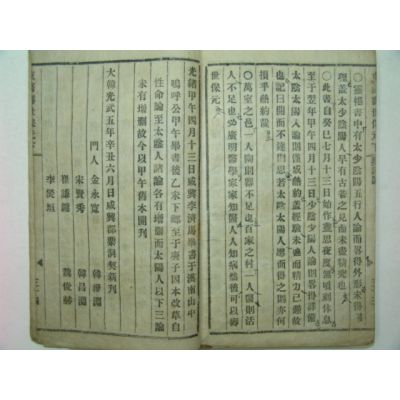 ○靈樞書中有太少陰陽五行人論而畧得外形未得臟
理盖太少陰陽人早有古昔之見而未盡精究也
○此書自癸巳七月十三日始作晝思夜度無頃刻休息
至于翌年甲午四月十三日少陰少陽人論則畧得詳備
太陰太陽人論則僅成簡約盖經驗未遍而精力已憊故
也記曰開而不達則思若太陰太陽人思而得之則亦何
損乎簡約哉
○萬室之邑一人陶則器不足也百家之村一人醫則活
人不足也必廣明醫學家家知醫人人知病然後可以壽
世保元
光緒甲午四月十三日咸興李濟馬畢書于漢南山中
嗚呼公甲午畢書後乙未下鄕至于庚子因本改草自
性命論至太陰人諸論各有增刪而太陽人以下三論
未有增刪故今以甲午舊本開刊
大韓光武五年辛丑六月日咸興郡栗洞契新刊
門人 金永寬 韓稷淵
宋賢秀 韓昌淵
崔謙鏞 魏俊赫
李燮垣